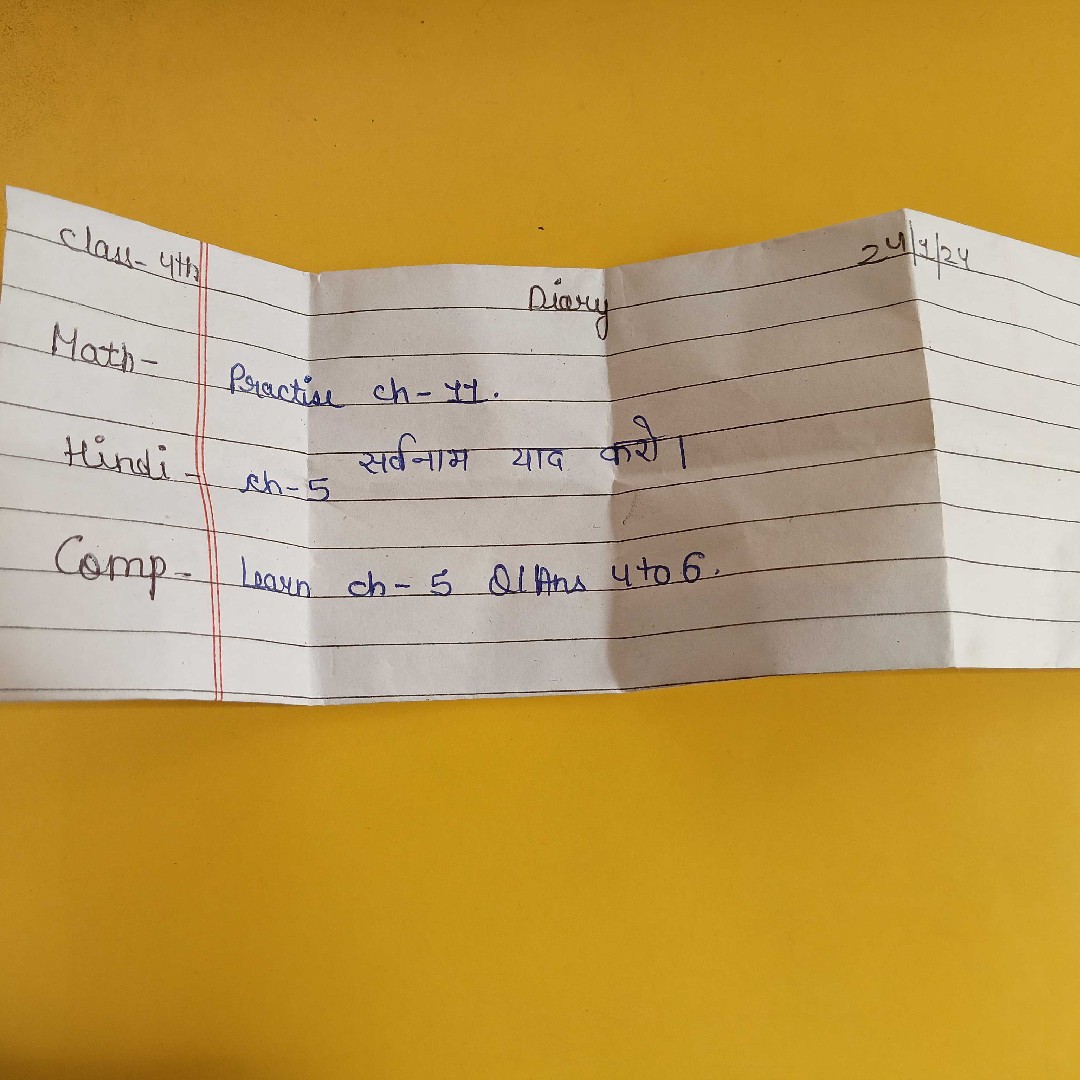 Class- 4th
Diary
24/7/24
Math- Practise ch- 11.
Hindi - ch-5 सर्वनाम याद करो।
Comp- Learn ch- 5 Q/Ans 4 to 6.